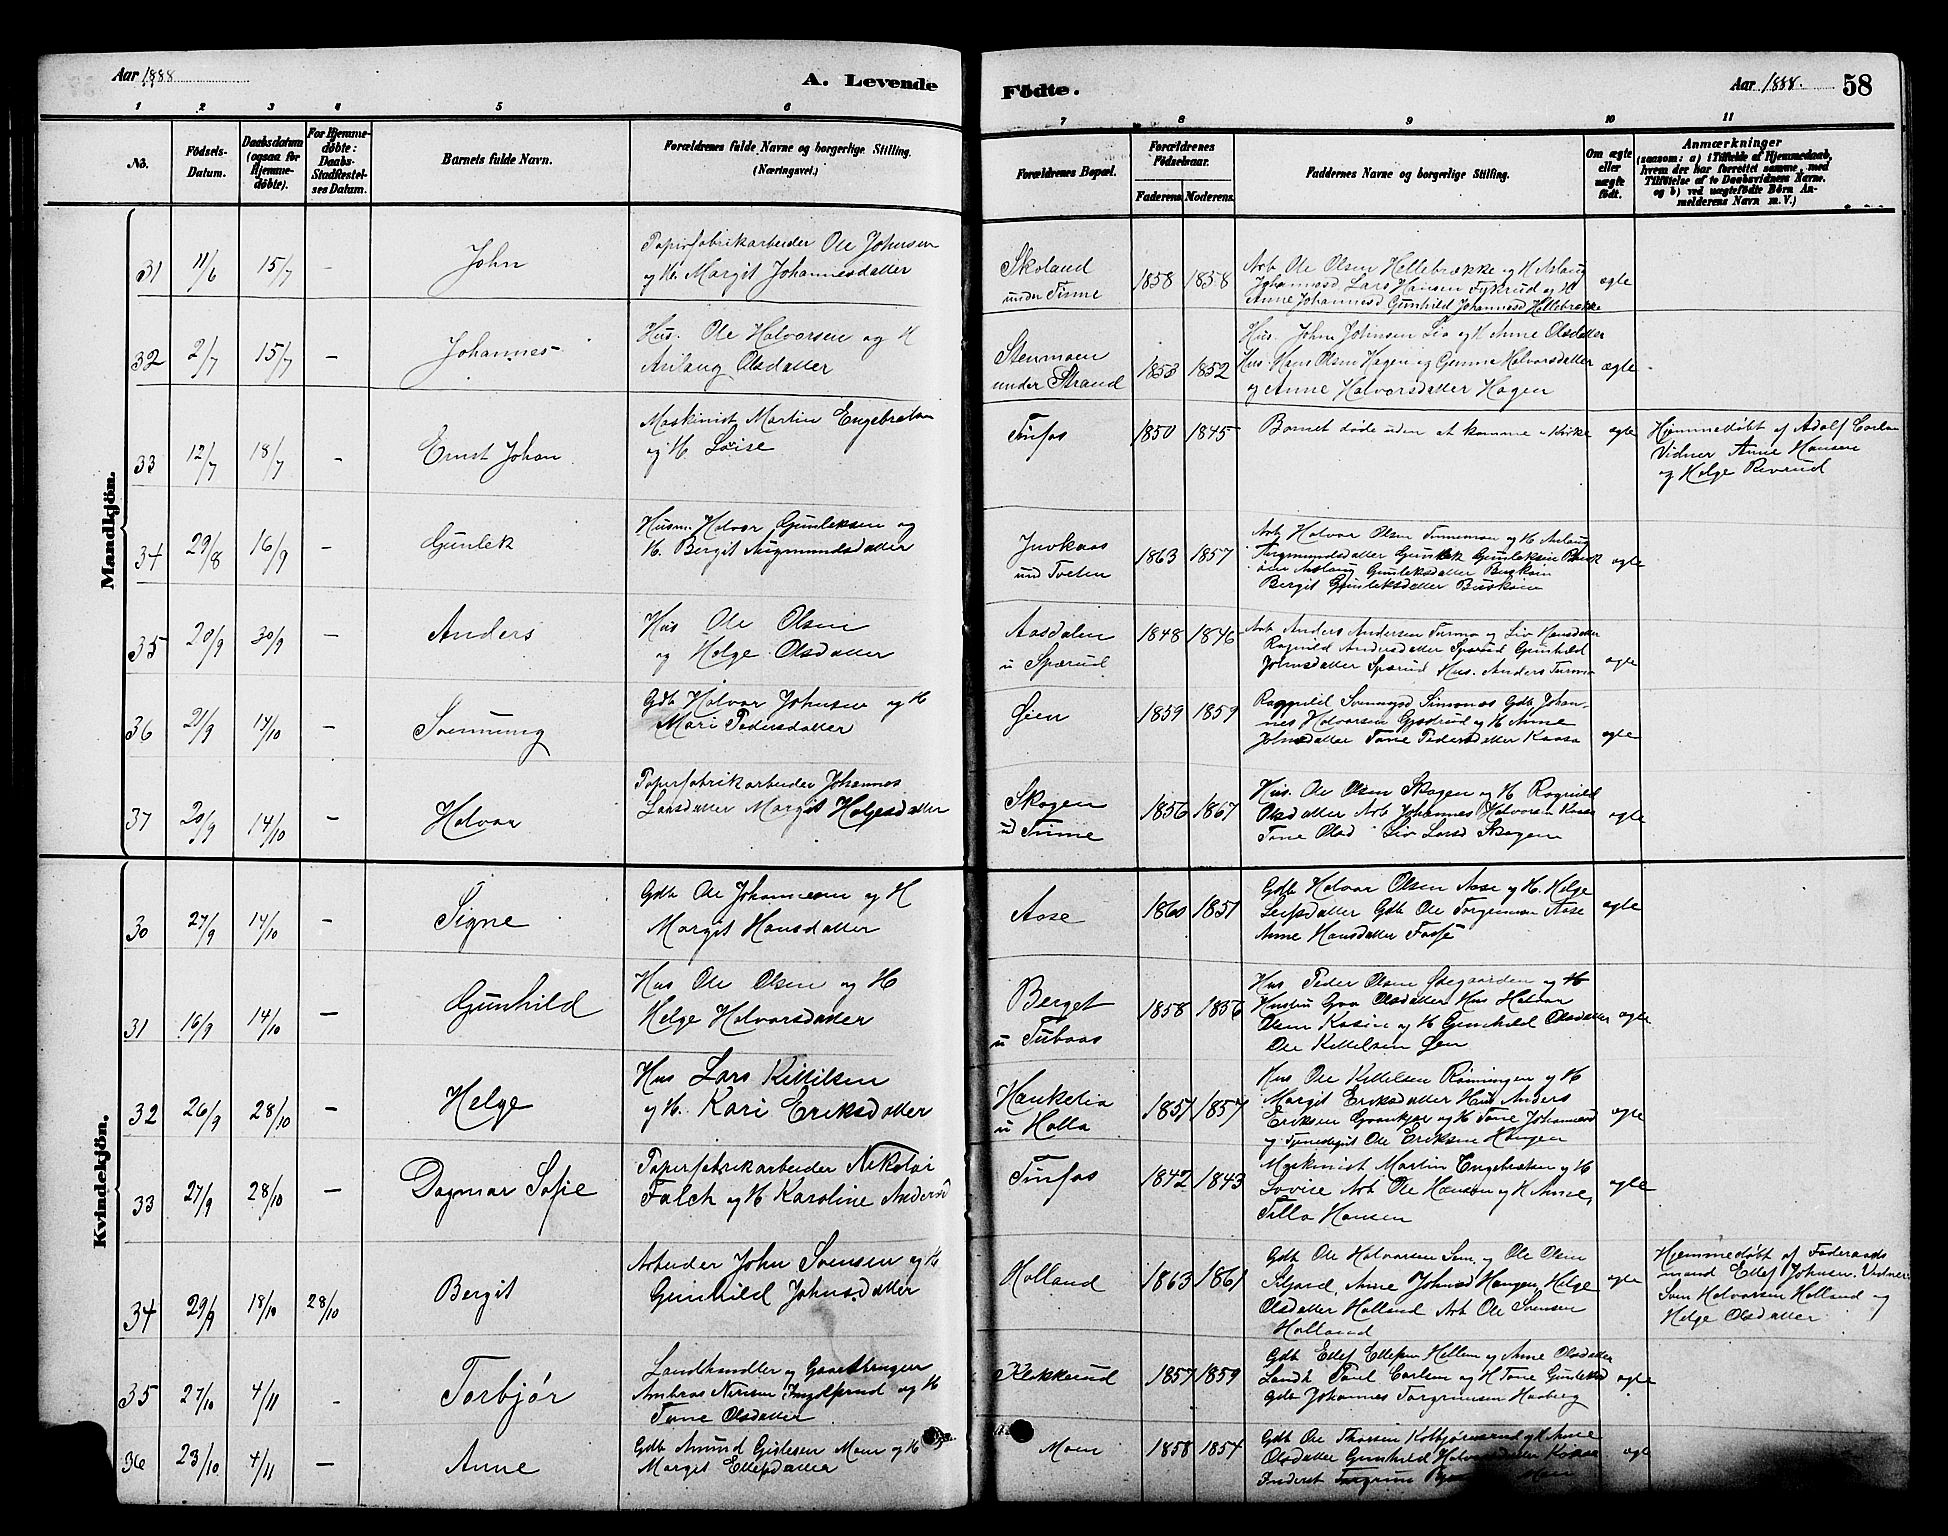 Aar 1888
A. Levende
Födte.
Aar 1888.
58
1 2 3 4 5 6 7 8 9 10 11
No.
Födsels-Datum.
Daabsdatum (ogsaa for Hjemmedöbte).
For Hjemmedöbte: Daabs-Stadfæstelses Datum.
Barnets fulde Navn.
Forældrenes fulde Navne og borgerlige Stilling. (Næringsvei.)
Forældrenes Bopæl.
Forældrenes Födselsaar.
Faderens. Moderens.
Faddernes Navne og borgerlige Stilling.
Om ægte eller uægte födt.
Anmærkninger
(saasom: a) i Tilfælde af Hjemmedaab, hvem der har forrettet samme, med Tilföielse af to Daabsvidners Navne. og b) ved uægtefödte Börn Anmelderens Navn m. V.)
Mandkjön.
31 11/6 15/7 - John
Papirfabrikarbeider Ole Johnsen
og H. Margit Johannesdatter
Skoland
under Tinne
1858 1858
Arb Ole Olsen Hellebrække og H Aslaug
Johannesd Lars Hansen Tykrud og H
Anne Johannesd Gunhild Johannesd Hellebrække
ægte
32 2/7 15/7 - Johannes
Hus. Ole Halvorsen og H
Aslaug Olsdatter
Stenmoen
under Strand
1853 1852
Hus. John Johnsen Lia og H Anne Olsdatter
Hus. Hans Olsen Hagen og Gunne Halvorsdatter
og Anne Halvorsdatter Hagen
ægte
33 12/7 18/7 - Ernst Johan
Maskinist Martin Engebretsen
og H Lovise
Tinfos
1850 1845
Barnet døde uden at komme i Kirke
ægte
Hjemmedøbt af Adolf Carlsen
Vidner Anne Hansen
og Helge Revrud
34 29/8 16/9 - Gunlek
Husm. Halvor Gunleksen og
H. Bergit Augmundsdatter
und Tveten
1863 1857
Arb Halvor Olsen Tinnemoen og H Aslaug
Augmundsdatter Gunlek Gunleksen
Aslaug Gunleksdatter Buskøin
Bergit Gunleksdatter Buskøin
ægte
35 20/9 30/9 - Anders
Hus Ole Olsen
og Helge Olsdatter
Aasdalen
u Spærud
1848 1846
Arb Anders Andersen Turmo og Liv Hansdatter
Ragnild Andersdatter Spærud Gunhild
Johnsdatter Spærud Hus. Anders Turmo
ægte
36 21/9 14/10 - Svennung
Gdb Halvor Johnsen og H
Mari Pedersdatter
Øien
1859 1859
Ragnhild Svennugsd Simones Gdb Johan-
nes Halvorsen Gjøsrud og H Anne
Johnsdatter Tone Pedersdatter Kaasa
ægte
37 20/9 14/10 - Halvor
Papirfabrikarbeider Johannes
Larsdatter Margit Helgesdatter
Skogen
u Tinne
1856 1867
Hus. Ole Olsen Skogen og H Ragnild
Olsdatter Arb Johannes Halvorsen Kaasa
Tone Olsd Liv Larsd Skogen
ægte
Kvindekjön.
30 27/9 14/10 - Signe
Gdb Ole Johannesen og H
Margit Hansdatter
Aase
1860 1851
Gdb Halvor Olsen Aase og H. Helge
Leifsdatter Gdb Ole Torgrimsen Aase
Anne Hansdatter
ægte
31 16/9 14/10 - Gunhild
Hus Ole Olsen og H
Helge Halvorsdatter
Berget
u Tubaas
1858 1856
Hus Peder Olsen Øvegaarden og H
Hustru Gro Olsdatter Hus Halvor
Olsen Kasin og H Gunhild Olsdatter
Ole Kittelsen Øen
ægte
32 26/9 28/10 - Helge
Hus Lars Kittilsen
og H. Kari Eriksdatter
Haukelia
u Holla
1851 1857
Hus Ole Kittelsen Rønningen og H
Margit Eriksdatter Hus Anders
Eriksen Grønkjær og H Tone Johannesd
og Tjenestegut Ole Eriksen Haugen
ægte
33 27/9 28/10 - Dagmar Sofie
Papirfabrikarbeider Nikolai
Falch og H Karoline Andersd
Tinfos
1842 1843
Maskinist Martin Engebretsen og H
Lovise Arb Ole Hansen og H Anne,
Tilla Hansen
ægte
34 29/9 18/10 28/10 Bergit
Arbeider John Svensen og H
Gunhild Johnsdatter
Holland
1863 1861
Gdb Ole Halvorsen Sem, og Ole Olsen
Anne Johnsd Haugen, Helge
Olsdatter Holland Arb Ole Svensen
Holland
ægte
Hjemmedøbt af Føderaads
mand Ellef Johnsen. Vidner
Sven Halvorsen Holland og
Helge Olsdatter
35 27/10 4/11 - Torbjør
Landhandler og Gaardbruger
Ambros Nirisen Ingolfsrud og H
Tone Olsdatter
Klokkerud
1857 1859
Gdb Ellef Ellefsen Hellem og Anne Olsdatter
Landh Poul Carlsen og H Tone Gunleksd
Gdb Johannes Torgrimsen Haaberg
ægte
36 23/10 4/11 - Anne
Gdb Amund Gislesen Moen og H
Margit Ellefsdatter
Moen
1858 1854
Gdb Ole Thorsen Kolbjørnsrud og H Anne
Olsdatter Gunhild Halvorsdatter Kaasa
ægte